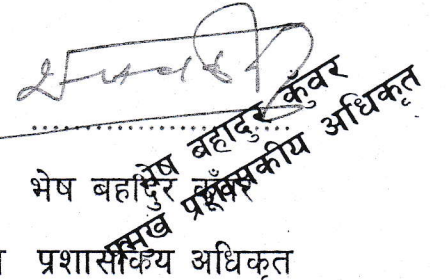 भेष बहादुर कुँवर
प्रमुख प्रशासकीय अधिकृत
भेष बहादुर कुँवर
प्रशासकिय अधिकृत